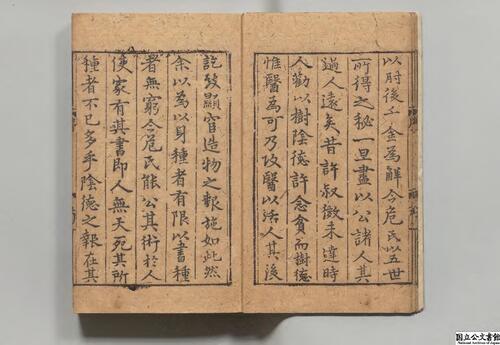 以肘後千金為解今危氏以五世
所得之秘一旦盡以公諸人其
過人遠矣昔許叔微未達時
人勸以樹陰德許念貧而樹德
惟醫為可乃攻醫以活人其後
訖致顯宦造物之報施如此然
余以為以身種者有限以書種
者無窮今危氏能公其術於人
使家有其書即人無夭死其所
種者不已多乎陰德之報在其
国立公文書館
National Archives of Japan